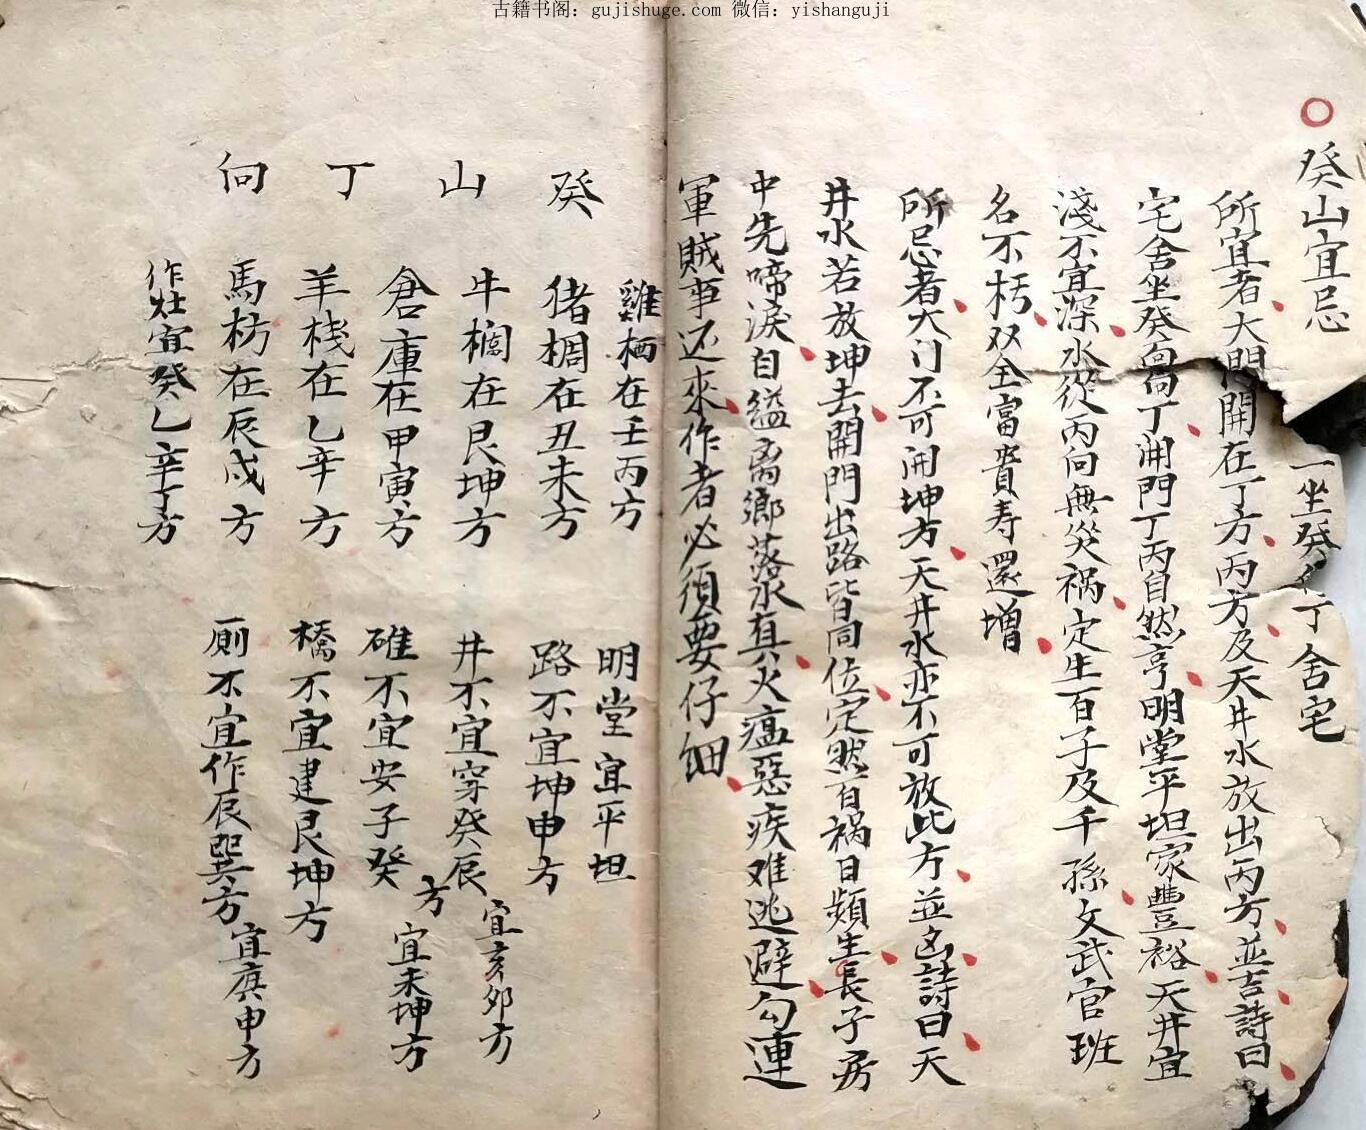 古籍书阁：gujishuge.com 微信：yishanguji
癸山宜忌
一坐癸 丁舍宅
所宜者大門開在丁方丙方及天井水放出丙方並吉詩曰
宅舍坐癸面向丁開門丁丙自然亨明堂平坦家豊裕天井宜
淺不宜深水從丙向無災祸定生百子及千孫文武官班
名不朽双全富貴寿還增
所忌者大门不可開坤方天井水亦不可放此方並凶詩曰天
井水若放坤去開門出路皆同位定然百禍日頻生長子房
中先啼淚自縊离鄉落水真火瘟惡疾难逃避勾連
軍賊事还來作者必須要仔细
癸山丁向
雞栖在壬丙方
猪椆在丑未方
牛欄在艮坤方
倉庫在甲寅方
羊棧在乙辛方
馬枋在辰戌方
作灶宜癸乙辛丁方
明堂宜平坦
路不宜坤申方
井不宜穿癸辰方宜亥卯方
碓不宜安子癸方宜未坤方
橋不宜建艮坤方
厠不宜作辰巽方宜庚申方